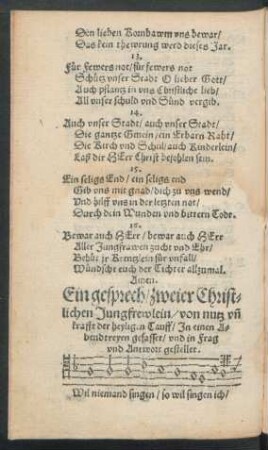 Den lieben Kornbawm vns bewar/
Das kein thewrung werd dieses Jar.
13.
Für fewers not/für fewers not
Schütz vnser Stadt O lieber Gott/
Auch pflantz in vns Christliche lieb/
All vnser schuld vnd Sünd vergib.
14.
Auch vnser Stadt/ auch vnser Stadt/
Die gantze Gmein/ ein Erbarn Raht/
Die Kirch vnd Schul/ auch Kinderlein/
Laß dir HErr Christ befohlen sein.
15.
Ein seligs End/ ein seligs end
Gib vns mit gnad/ dich zu vns wend/
Vnd hilff vns in der letzten not/
Durch dein Wunden vnd bittern Todt.
16.
Bewar auch HErr/ bewar auch HErr
Aller Jungfrawen zucht vnd Ehr/
Behüt jr Krentzlein für vnfall/
Wündscht euch der Tichter allzumal.
Amen.
Ein gesprech/ zweier Christ-
lichen Jungfrewlein/ von nutz vñ
krafft der heyligen Tauff/ In einen A-
bendtreyen gefasset/ vnd in Frag
vnd Antwort gestellet.
Wil niemand singen/ so wil singen ich/